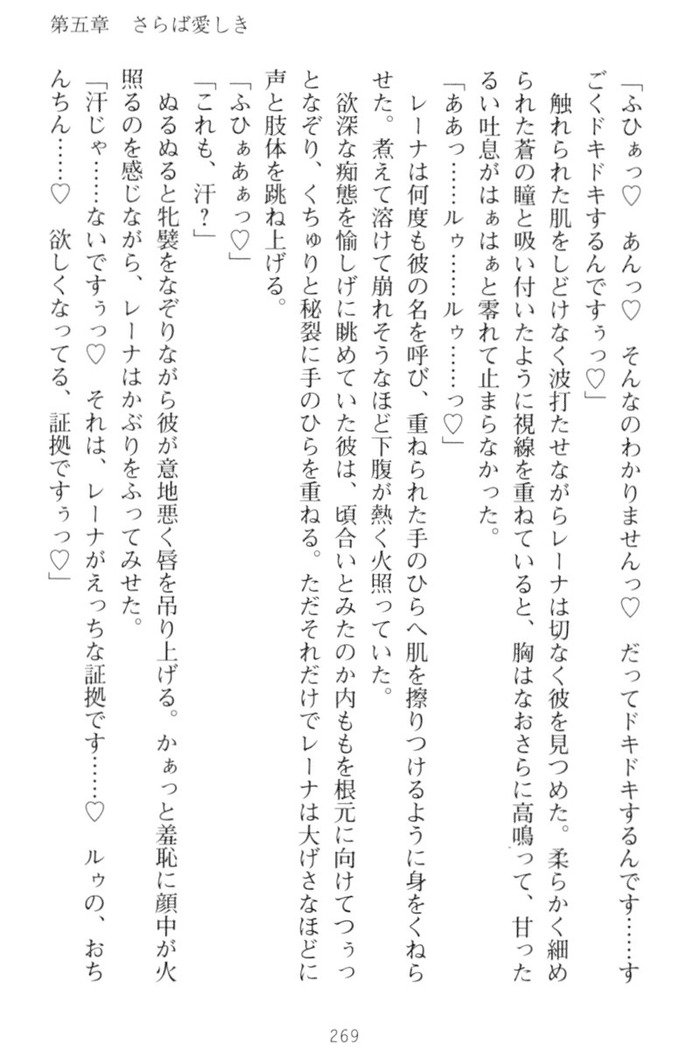 第五章　さらば愛しき
「ふひぁっ♡　あんっ♡　そんなのわかりませんっ♡　だってドキドキするんです……す
ごくドキドキするんですぅっ♡」
　触れられた肌をしどけなく波打たせながらレーナは切なく彼を見つめた。柔らかく細め
られた蒼の瞳と吸い付いたように視線を重ねていると、胸はなおさらに高鳴って、甘った
るい吐息がはぁはぁと零れて止まらなかった。
「ああっ……ルゥ……ルゥ……っ♡」
　レーナは何度も彼の名を呼び、重ねられた手のひらへ肌を擦りつけるように身をくねら
せた。煮えて溶けて崩れそうなほど下腹が熱く火照っていた。
　欲深な痴態を愉しげに眺めていた彼は、頃合いとみたのか内ももを根元に向けてつぅっ
となぞり、くちゅりと秘裂に手のひらを重ねる。ただそれだけでレーナは大げさなほどに
声と肢体を跳ね上げる。
「ふひぁあぁっ♡」
「これも、汗？」
　ぬるぬると牝襞をなぞりながら彼が意地悪く唇を吊り上げる。かぁっと羞恥に顔中が火
照るのを感じながら、レーナはかぶりをふってみせた。
「汗じゃ……ないですぅっ♡　それは、レーナがえっちな証拠です……♡　ルゥの、おち
んちん……♡　欲しくなってる、証拠ですぅっ♡」
269